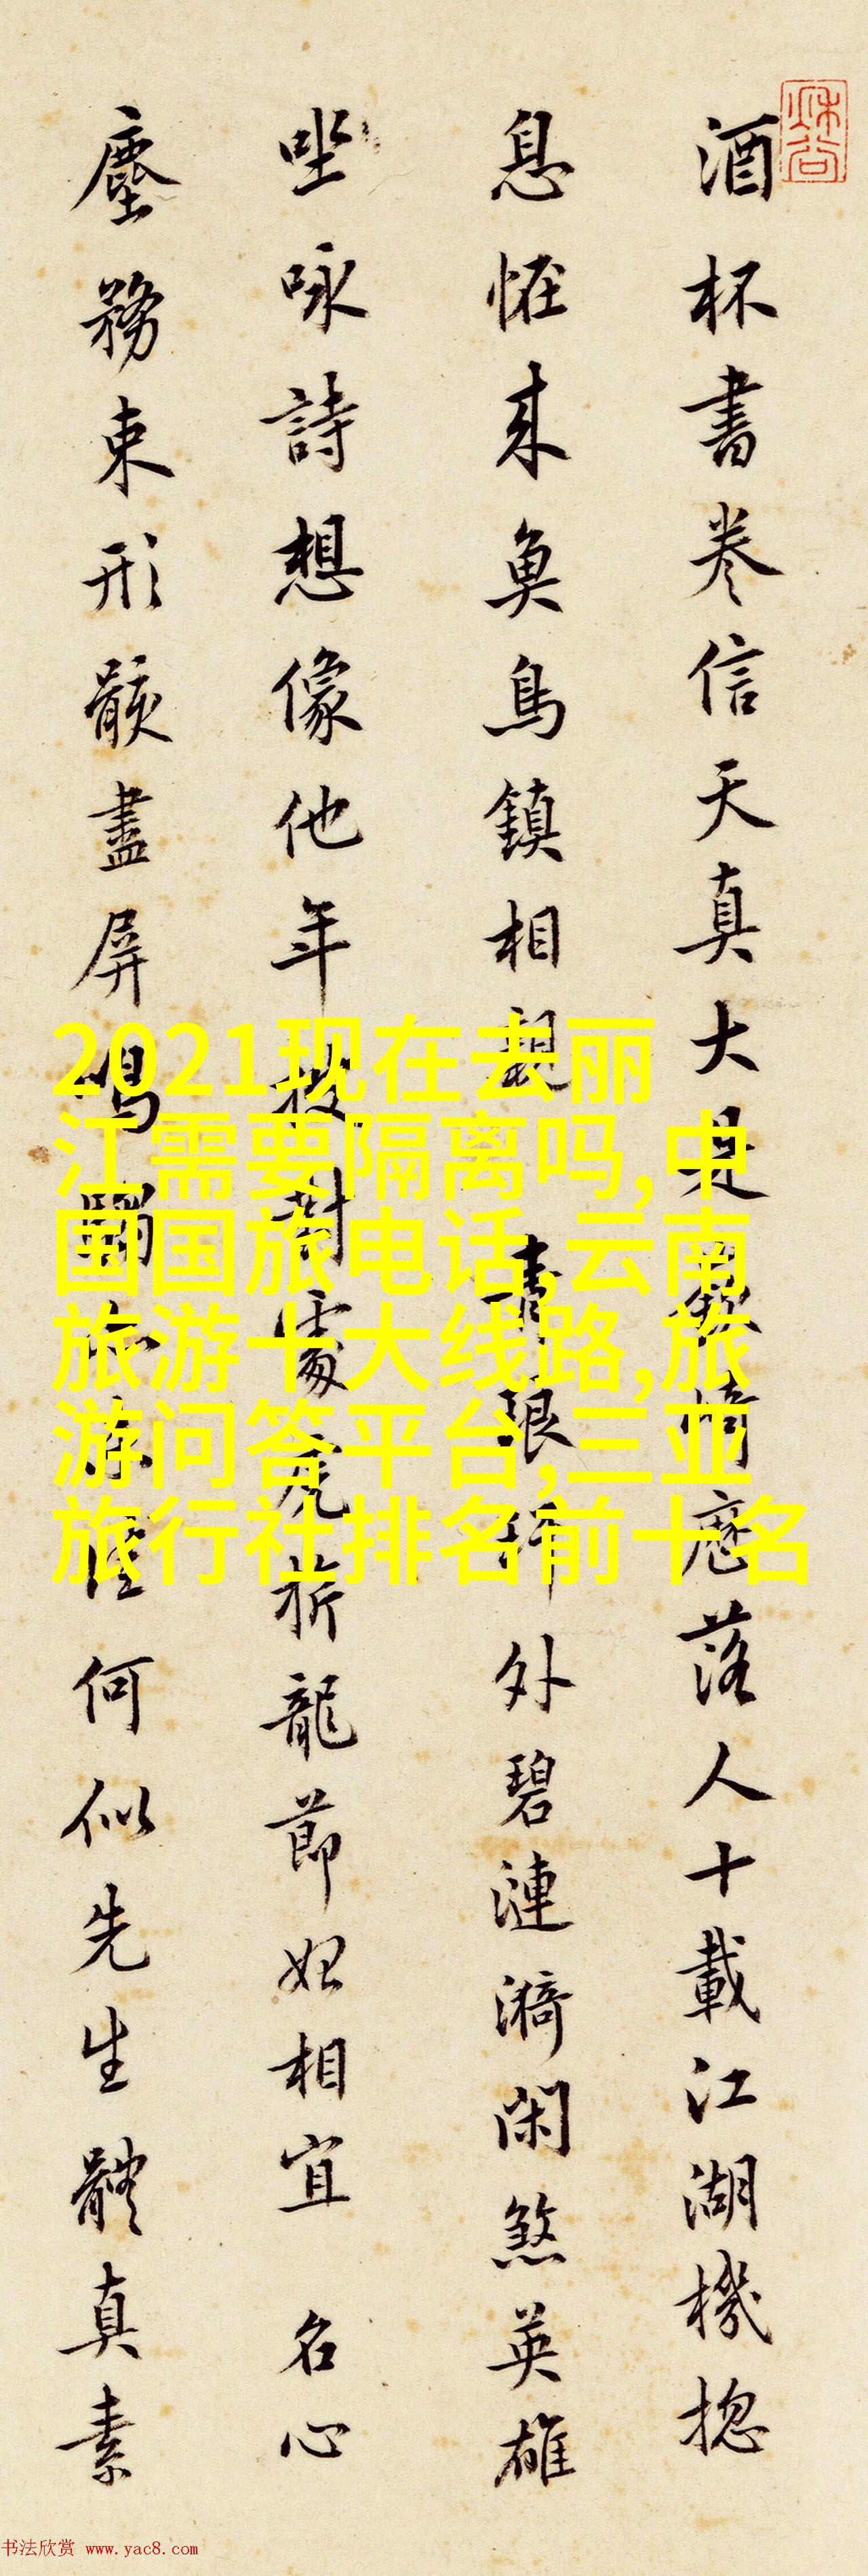 酒杯書卷信天真大是嶔崎歷落人十載江湖機揔
息怪來魚鳥鎮相親 外碧漣漪閑煞英雄
坐咏詩想像他年封處虎祈龍節妃相宜 名心
塵務束形骸盡屏何似先生體真素
2021现在去丽
江需要隔离吗,中
国国旅电话,云南
旅游十大线路,旅
游问答平台,三亚
旅行社排名前十名
书法欣赏 www.yac8.com